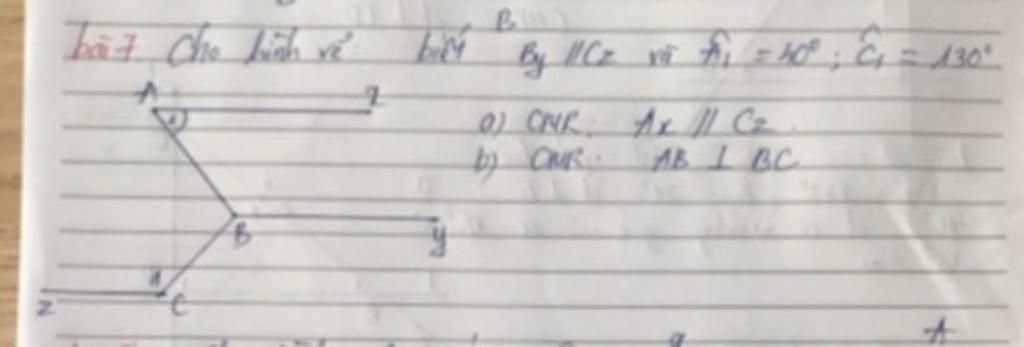 B
bài 7 Cho hình vẽ: biết By // Cz và Â₁ = 40°; Ĉ₁ = 130°
A x
a) CMR: Ax // Cz
b) CMR: AB ⊥ BC
B y
1
z C
A